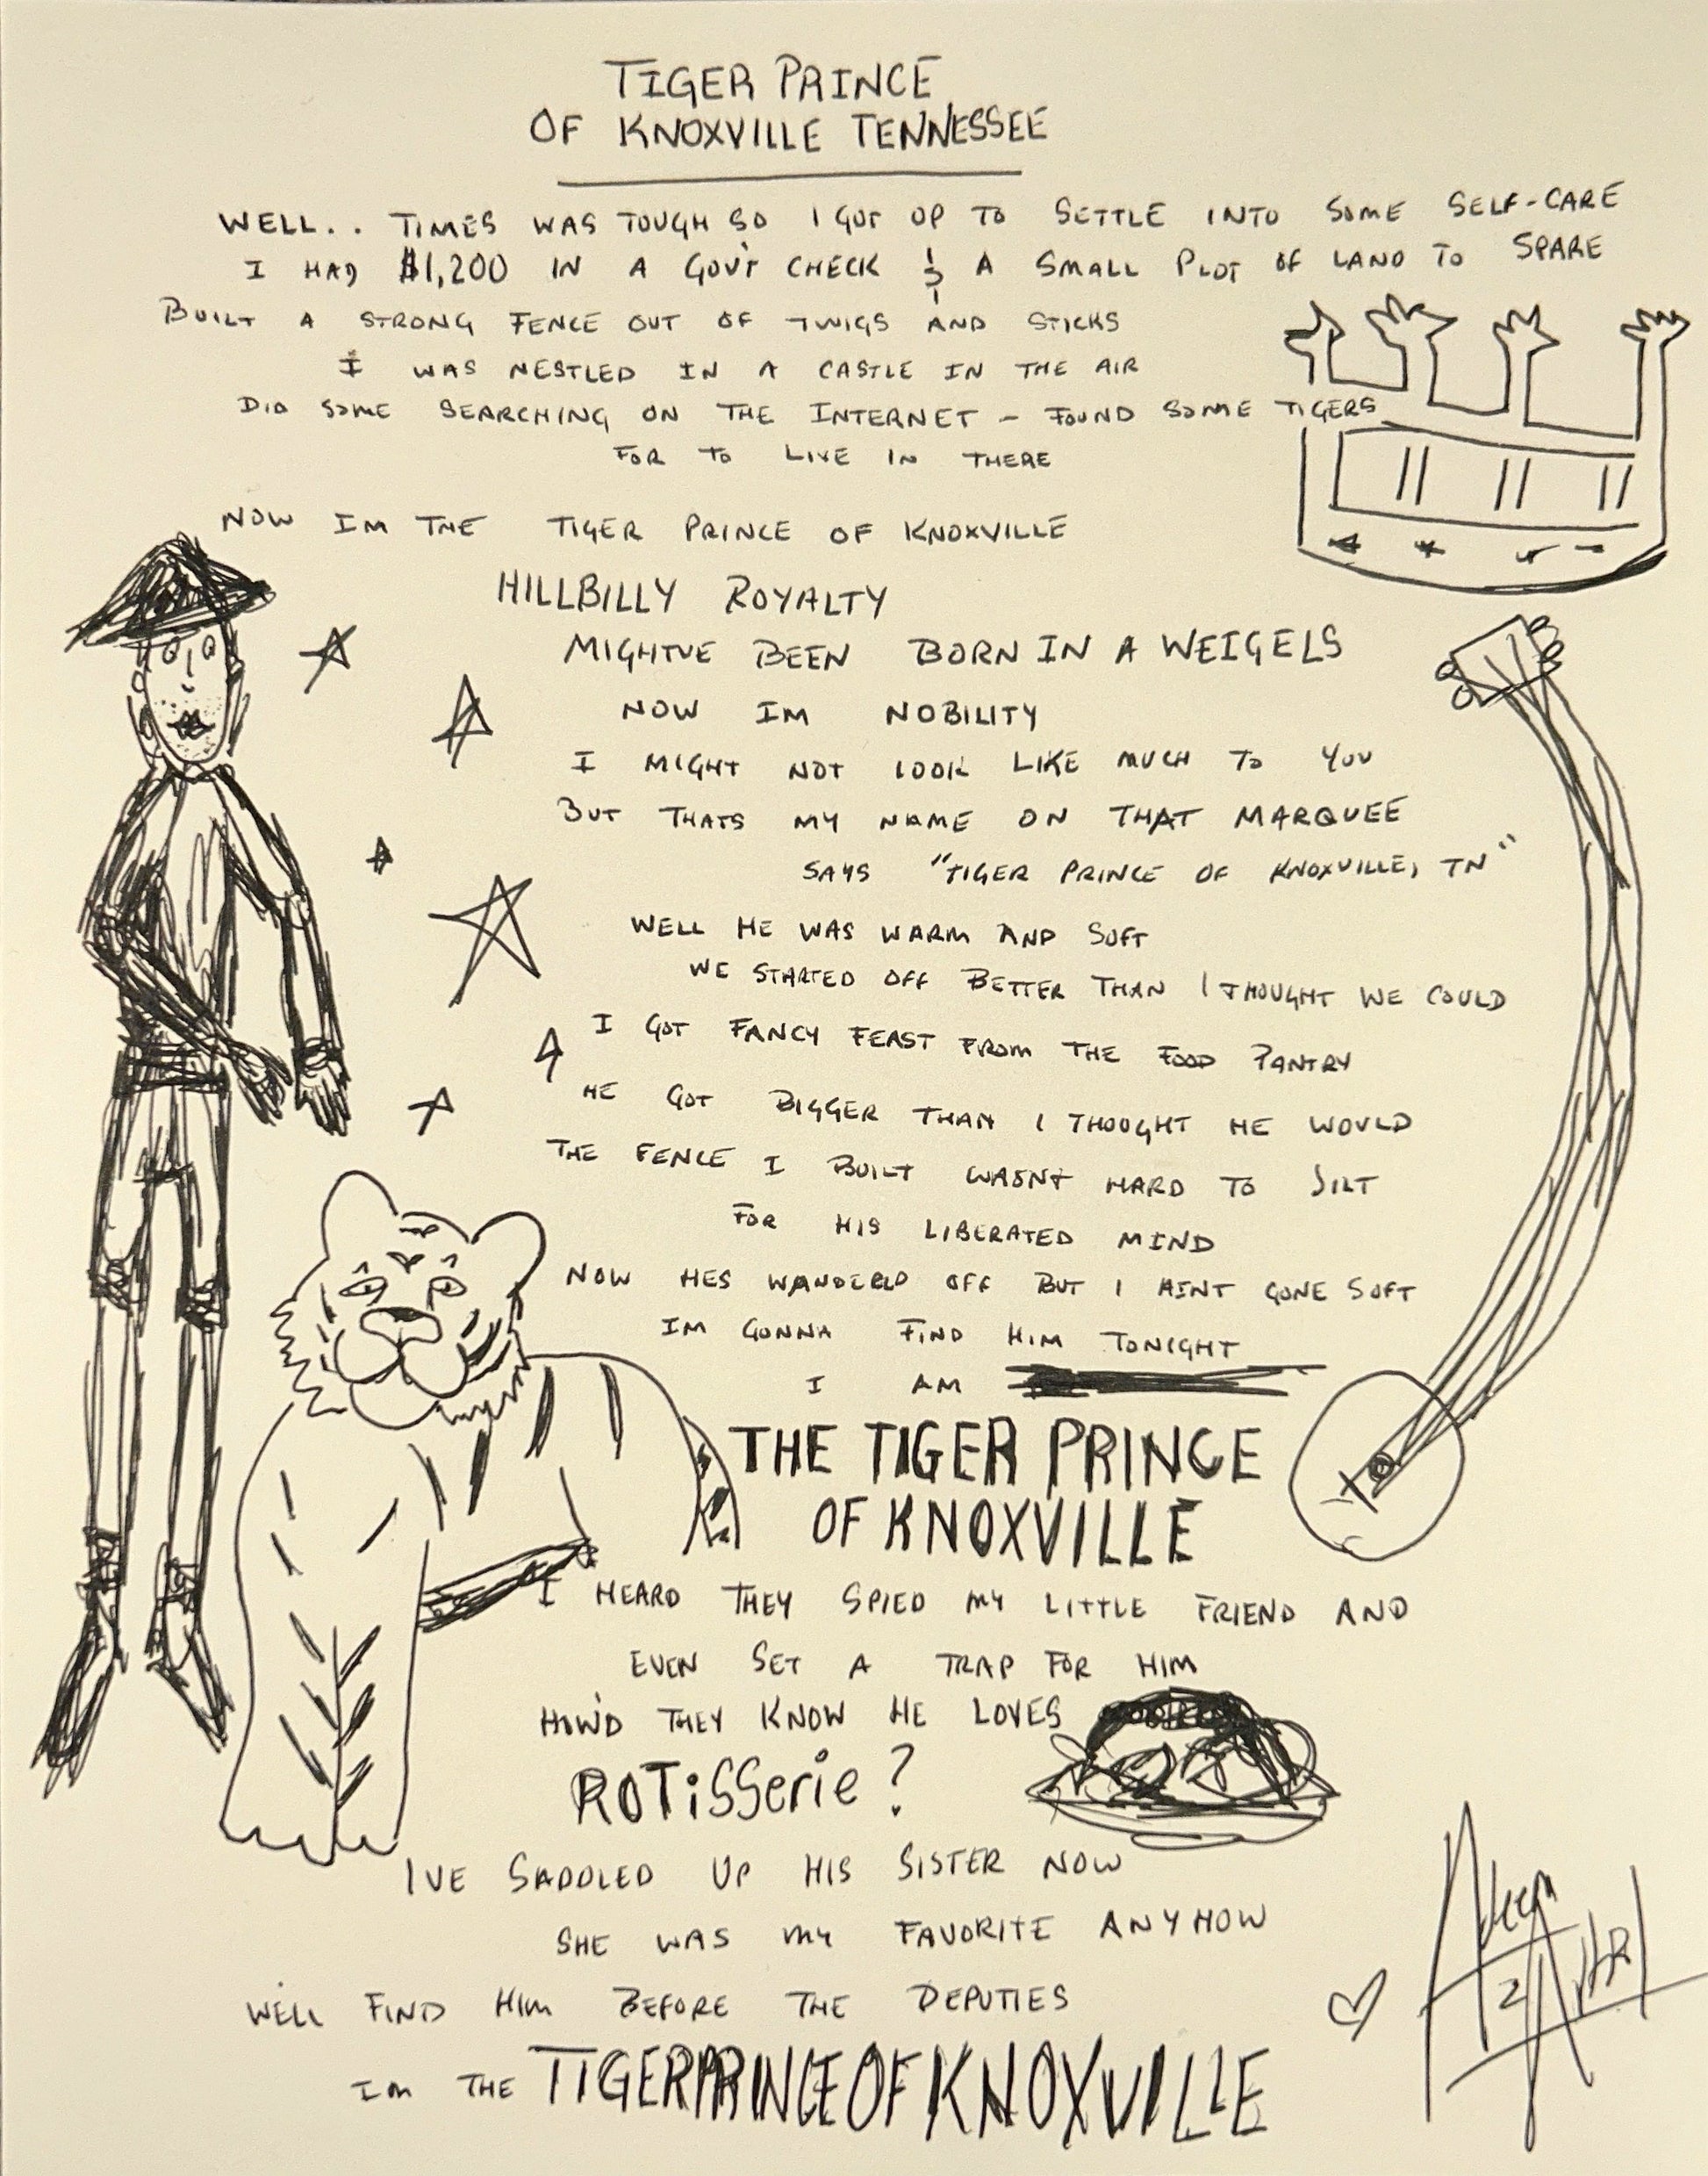 TIGER PRINCE
OF KNOXVILLE TENNESSEE
WELL.. TIMES WAS TOUGH SO I GOT UP TO SETTLE INTO SOME SELF-CARE
I HAD $1,200 IN A GOV'T CHECK & A SMALL PLOT OF LAND TO SPARE
BUILT A STRONG FENCE OUT OF TWIGS AND STICKS
I WAS NESTLED IN A CASTLE IN THE AIR
DID SOME SEARCHING ON THE INTERNET - FOUND SOME TIGERS
FOR TO LIVE IN THERE
NOW IM THE TIGER PRINCE OF KNOXVILLE
HILLBILLY ROYALTY
MIGHTVE BEEN BORN IN A WEIGELS
NOW IM NOBILITY
I MIGHT NOT LOOK LIKE MUCH TO YOU
BUT THATS MY NAME ON THAT MARQUEE
SAYS "TIGER PRINCE OF KNOXVILLE, TN"
WELL HE WAS WARM AND SOFT
WE STARTED OFF BETTER THAN I THOUGHT WE COULD
I GOT FANCY FEAST FROM THE FOOD PANTRY
HE GOT BIGGER THAN I THOUGHT HE WOULD
THE FENCE I BUILT WASNT HARD TO JILT
FOR HIS LIBERATED MIND
NOW HES WANDERED OFF BUT I AINT GONE SOFT
IM GONNA FIND HIM TONIGHT
I AM
THE TIGER PRINCE
OF KNOXVILLE
I HEARD THEY SPIED MY LITTLE FRIEND AND
EVEN SET A TRAP FOR HIM
HOW'D THEY KNOW HE LOVES
ROTisserie?
IVE SADDLED UP HIS SISTER NOW
SHE WAS MY FAVORITE ANYHOW
WELL FIND HIM BEFORE THE DEPUTIES
IM THE TIGERPRINCEOFKNOXVILLE